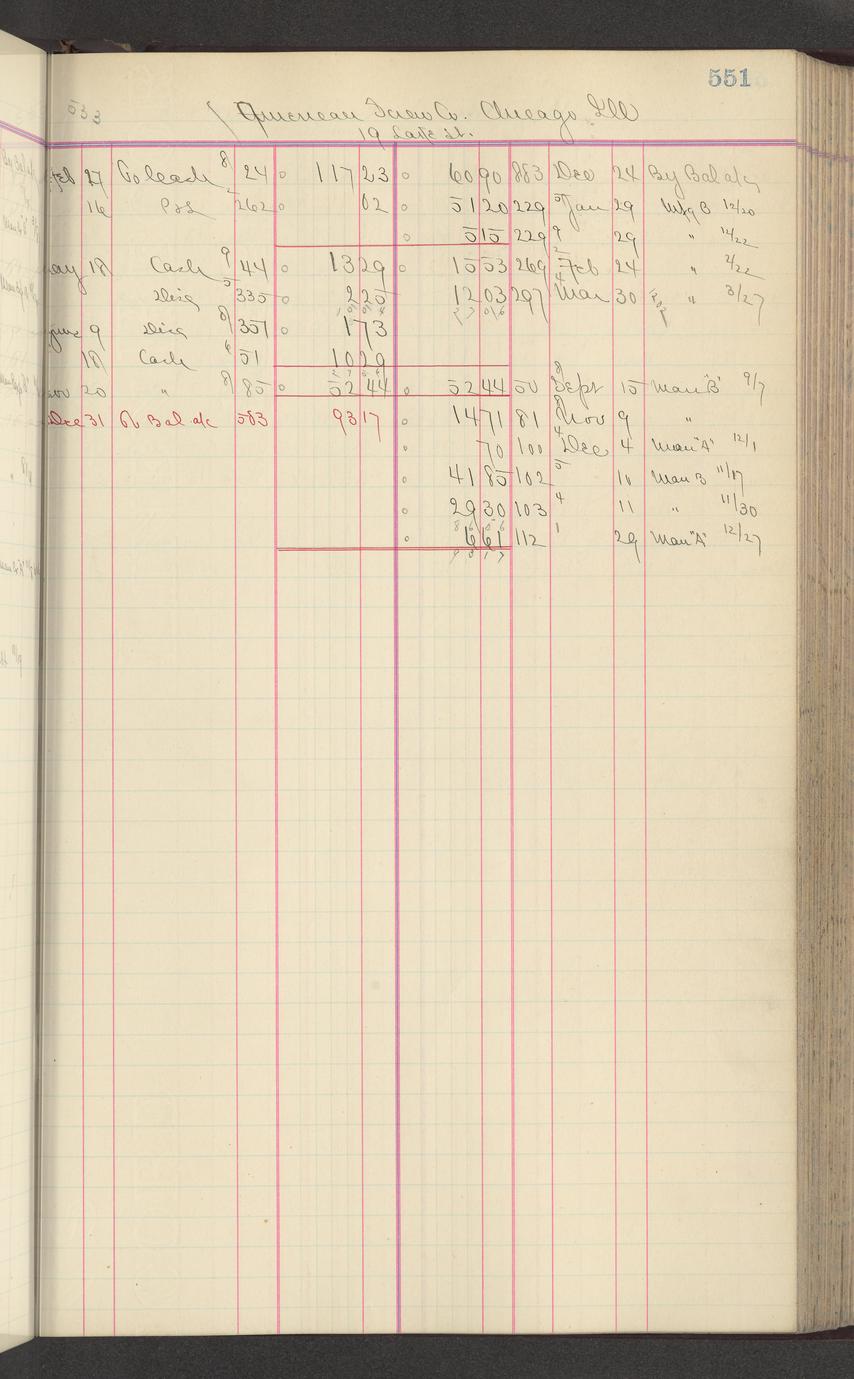 551
533
American Screw Co. Chicago Ill
19 Lake St.
Feb 27 To Cash 8 24 117 23 60 90 883 Dec 24 By Bal a/c
16 P&L 262 02 51 20 229 5 Jan 29 Mfg B 12/20
5 15 229 9 29 " 12/22
May 18 Cash 9 44 13 29 15 53 269 2 Feb 24 " 2/22
Disc 5 335 2 25 12 03 297 4 Mar 30 " 3/27
June 9 Disc 8 357 1 73
18 Cash 6 51 10 29
Nov 20 " 8 85 52 44 52 44 50 8 Sept 15 Man "B" 9/7
Dec 31 To Bal a/c 583 93 17 14 71 81 8 Nov 9 "
70 100 4 Dec 4 Man "A" 12/1
41 85 102 5 10 Man B 11/17
29 30 103 4 11 " 11/30
86 56
6 61 112 1 29 Man "A" 12/27
93 17